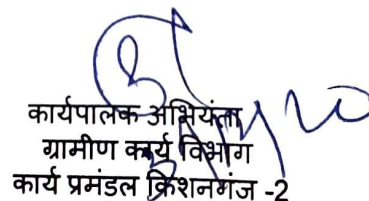 कार्यपालक अभियंता
ग्रामीण कार्य विभाग
कार्य प्रमंडल किशनगंज -2